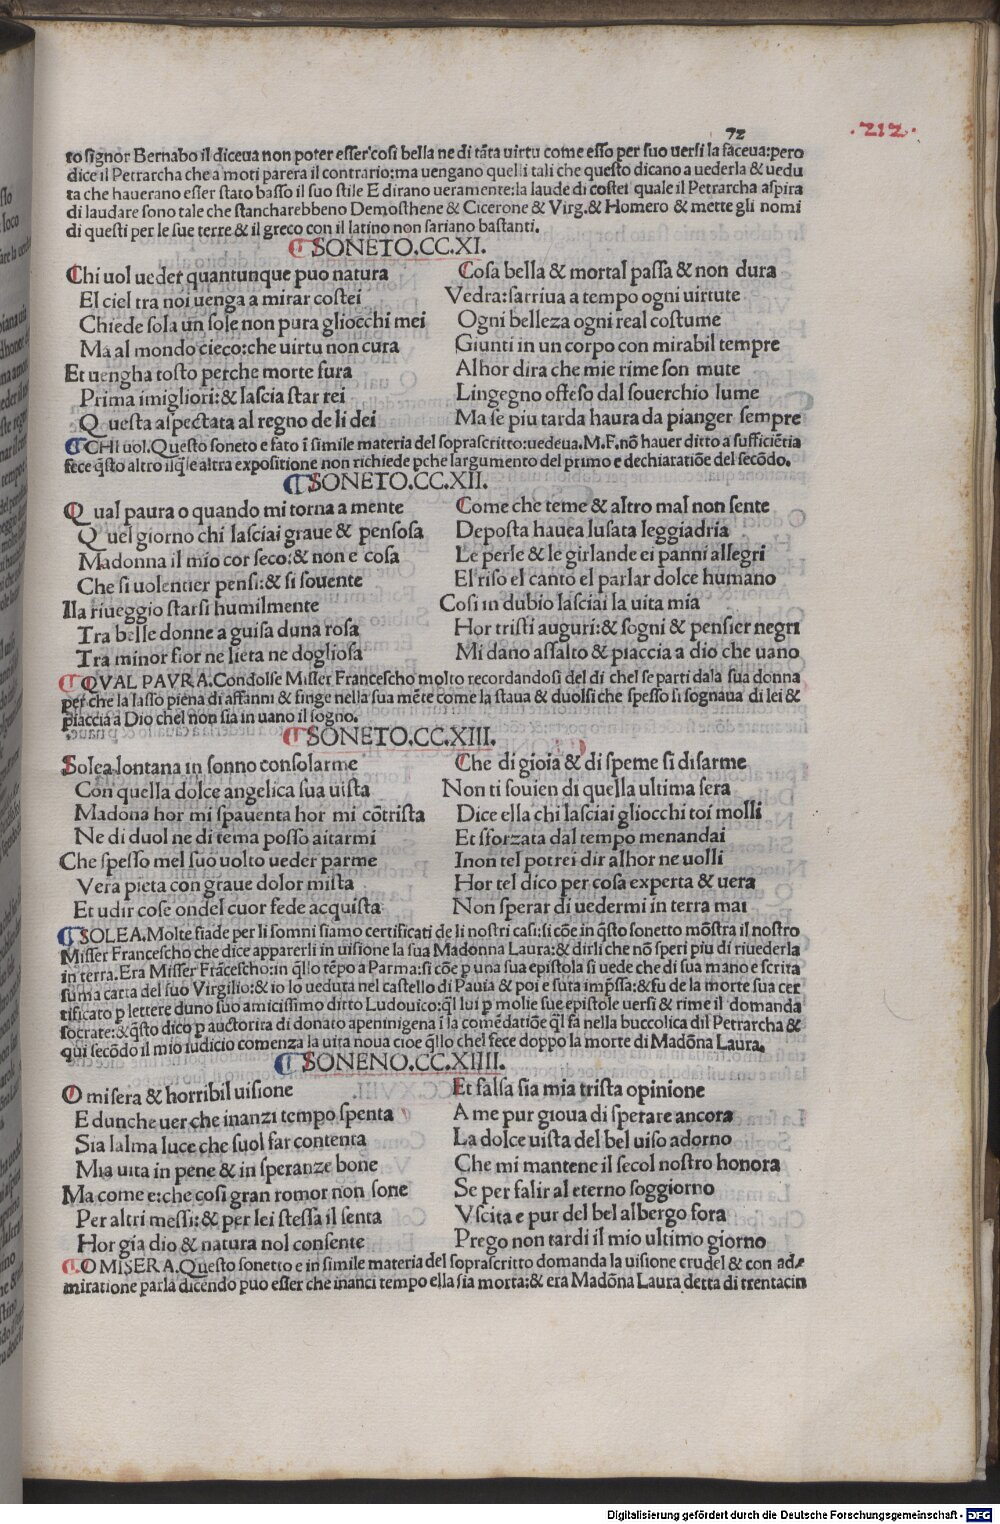 72
.212.
to signor Bernabo il diceua non poter esser cosi bella ne di tāta uirtu come esso per suo uersi la faceua:pero
dice il Petrarcha che a moti parera il contrario:ma uengano quelli tali che questo dicano a uederla & uedu
ta che hauerano esser stato basso il suo stile E dirano ueramente:la laude di costei quale il Petrarcha aspira
di laudare sono tale che stancharebbeno Demosthene & Cicerone & Virg.& Homero & mette gli nomi
di questi per le sue terre & il greco con il latino non sariano bastanti.
¶ SONETO.CC.XI.
Chi uol ueder quantunque puo natura
El ciel tra noi uenga a mirar costei
Chiede sola un sole non pura gliocchi mei
Ma al mondo cieco:che uirtu non cura
Et uengha tosto perche morte fura
Prima imigliori:& lascia star rei
Q uesta aspectata al regno de li dei
Cosa bella & mortal passa & non dura
Vedra:sarriua a tempo ogni uirtute
Ogni belleza ogni real costume
Giunti in un corpo con mirabil tempre
Alhor dira che mie rime son mute
Lingegno offeso dal souerchio lume
Ma se piu tarda haura da pianger sempre
¶ CHI uol.Questo soneto e fato ī simile materia del soprascritto:uedeua.M.F.nō hauer ditto a sufficiētia
fece q̄sto altro ilq̄le altra expositione non richiede pche largumento del primo e dechiaratiōe del secōdo.
¶ SONETO.CC.XII.
Q ual paura o quando mi torna a mente
Q uel giorno chi lasciai graue & pensosa
Madonna il mio cor seco:& non e cosa
Che si uolentier pensi:& si souente
Ila riueggio starsi humilmente
Tra belle donne a guisa duna rosa
Tra minor fior ne lieta ne dogliosa
Come che teme & altro mal non sente
Deposta hauea lusata leggiadria
Le perle & le girlande ei panni allegri
El riso el canto el parlar dolce humano
Cosi in dubio lasciai la uita mia
Hor tristi auguri:& sogni & pensier negri
Mi dano assalto & piaccia a dio che uano
¶ QVAL PAVRA.Condolse Misser Francescho molto recordandosi del di chel se parti dala sua donna
per che la lasso piena di affanni & finge nella sua mēte come la staua & duolsi che spesso si sognaua di lei &
piaccia a Dio chel non sia in uano il sogno.
¶ SONETO.CC.XIII.
Solea lontana in sonno consolarme
Con quella dolce angelica sua uista
Madona hor mi spauenta hor mi cōtrista
Ne di duol ne di tema posso aitarmi
Che spesso mel suo uolto ueder parme
Vera pieta con graue dolor mista
Et udir cose ondel cuor fede acquista
Che di gioia & di speme si disarme
Non ti souien di quella ultima sera
Dice ella chi lasciai gliocchi toi molli
Et sforzata dal tempo menandai
Inon tel potrei dir alhor ne uolli
Hor tel dico per cosa experta & uera
Non sperar di uedermi in terra mai
¶ SOLEA.Molte fiade per li somni siamo certificati de li nostri casi:si cōe in q̄sto sonetto mōstra il nostro
Misser Francescho che dice apparerli in uisione la sua Madonna Laura:& dirli che nō speri piu di riuederla
in terra.Era Misser Frācescho:in q̄llo tēpo a Parma:si cōe p una sua epistola si uede che di sua mano e scrita
su ma carta del suo Virgilio:& io lo ueduta nel castello di Pauia & poi e suta imp̄ssa:& fu de la morte sua cer
tificato p lettere duno suo amicissimo ditto Ludouico:q̄l lui p molie sue epistole uersi & rime il domanda
socrate:& q̄sto dico p auctorita di donato apeninigena ī la comēdatiōe q̄l fa nella buccolica dil Petrarcha &
qui secōdo il mio iudicio comenza la uita noua cioe q̄llo chel fece doppo la morte di Madōna Laura.
¶ SONENO.CC.XIIII.
O misera & horribil uisione
E dunche uer che inanzi tempo spenta
Sia lalma luce che suol far contenta
Mia uita in pene & in speranze bone
Ma come e:che cosi gran romor non sone
Per altri messi:& per lei stessa il senta
Hor gia dio & natura nol consente
Et falsa sia mia trista opinione
A me pur gioua di sperare ancora
La dolce uista del bel uiso adorno
Che mi mantene il secol nostro honora
Se per salir al eterno soggiorno
Vscita e pur del bel albergo fora
Prego non tardi il mio ultimo giorno
¶ O MISERA.Questo sonetto e in simile materia del soprascritto domanda la uisione crudel & con ad-
miratione parla dicendo puo esser che inanci tempo ella sia morta:& era Madōna Laura detta di trentacin
Digitalisierung gefördert durch die Deutsche Forschungsgemeinschaft - DFG